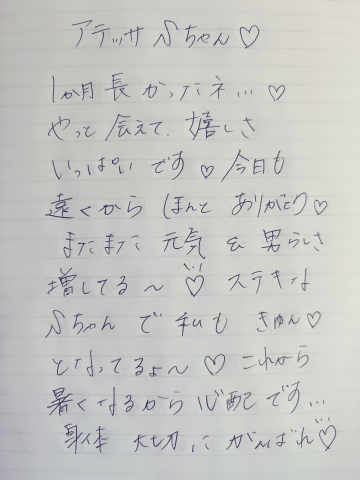 アテッサ Sちゃん♡
1か月長かったネ…♡
やっと会えて、嬉しさ
いっぱいです♡今日も
遠くからほんとありがとう♡
まだまだ元気&男らしさ
増してる〜♡ステキな
Sちゃんで私もきゅん♡
となってるよ〜♡これから
暑くなるから心配です…
身体大切にがんばれ♡